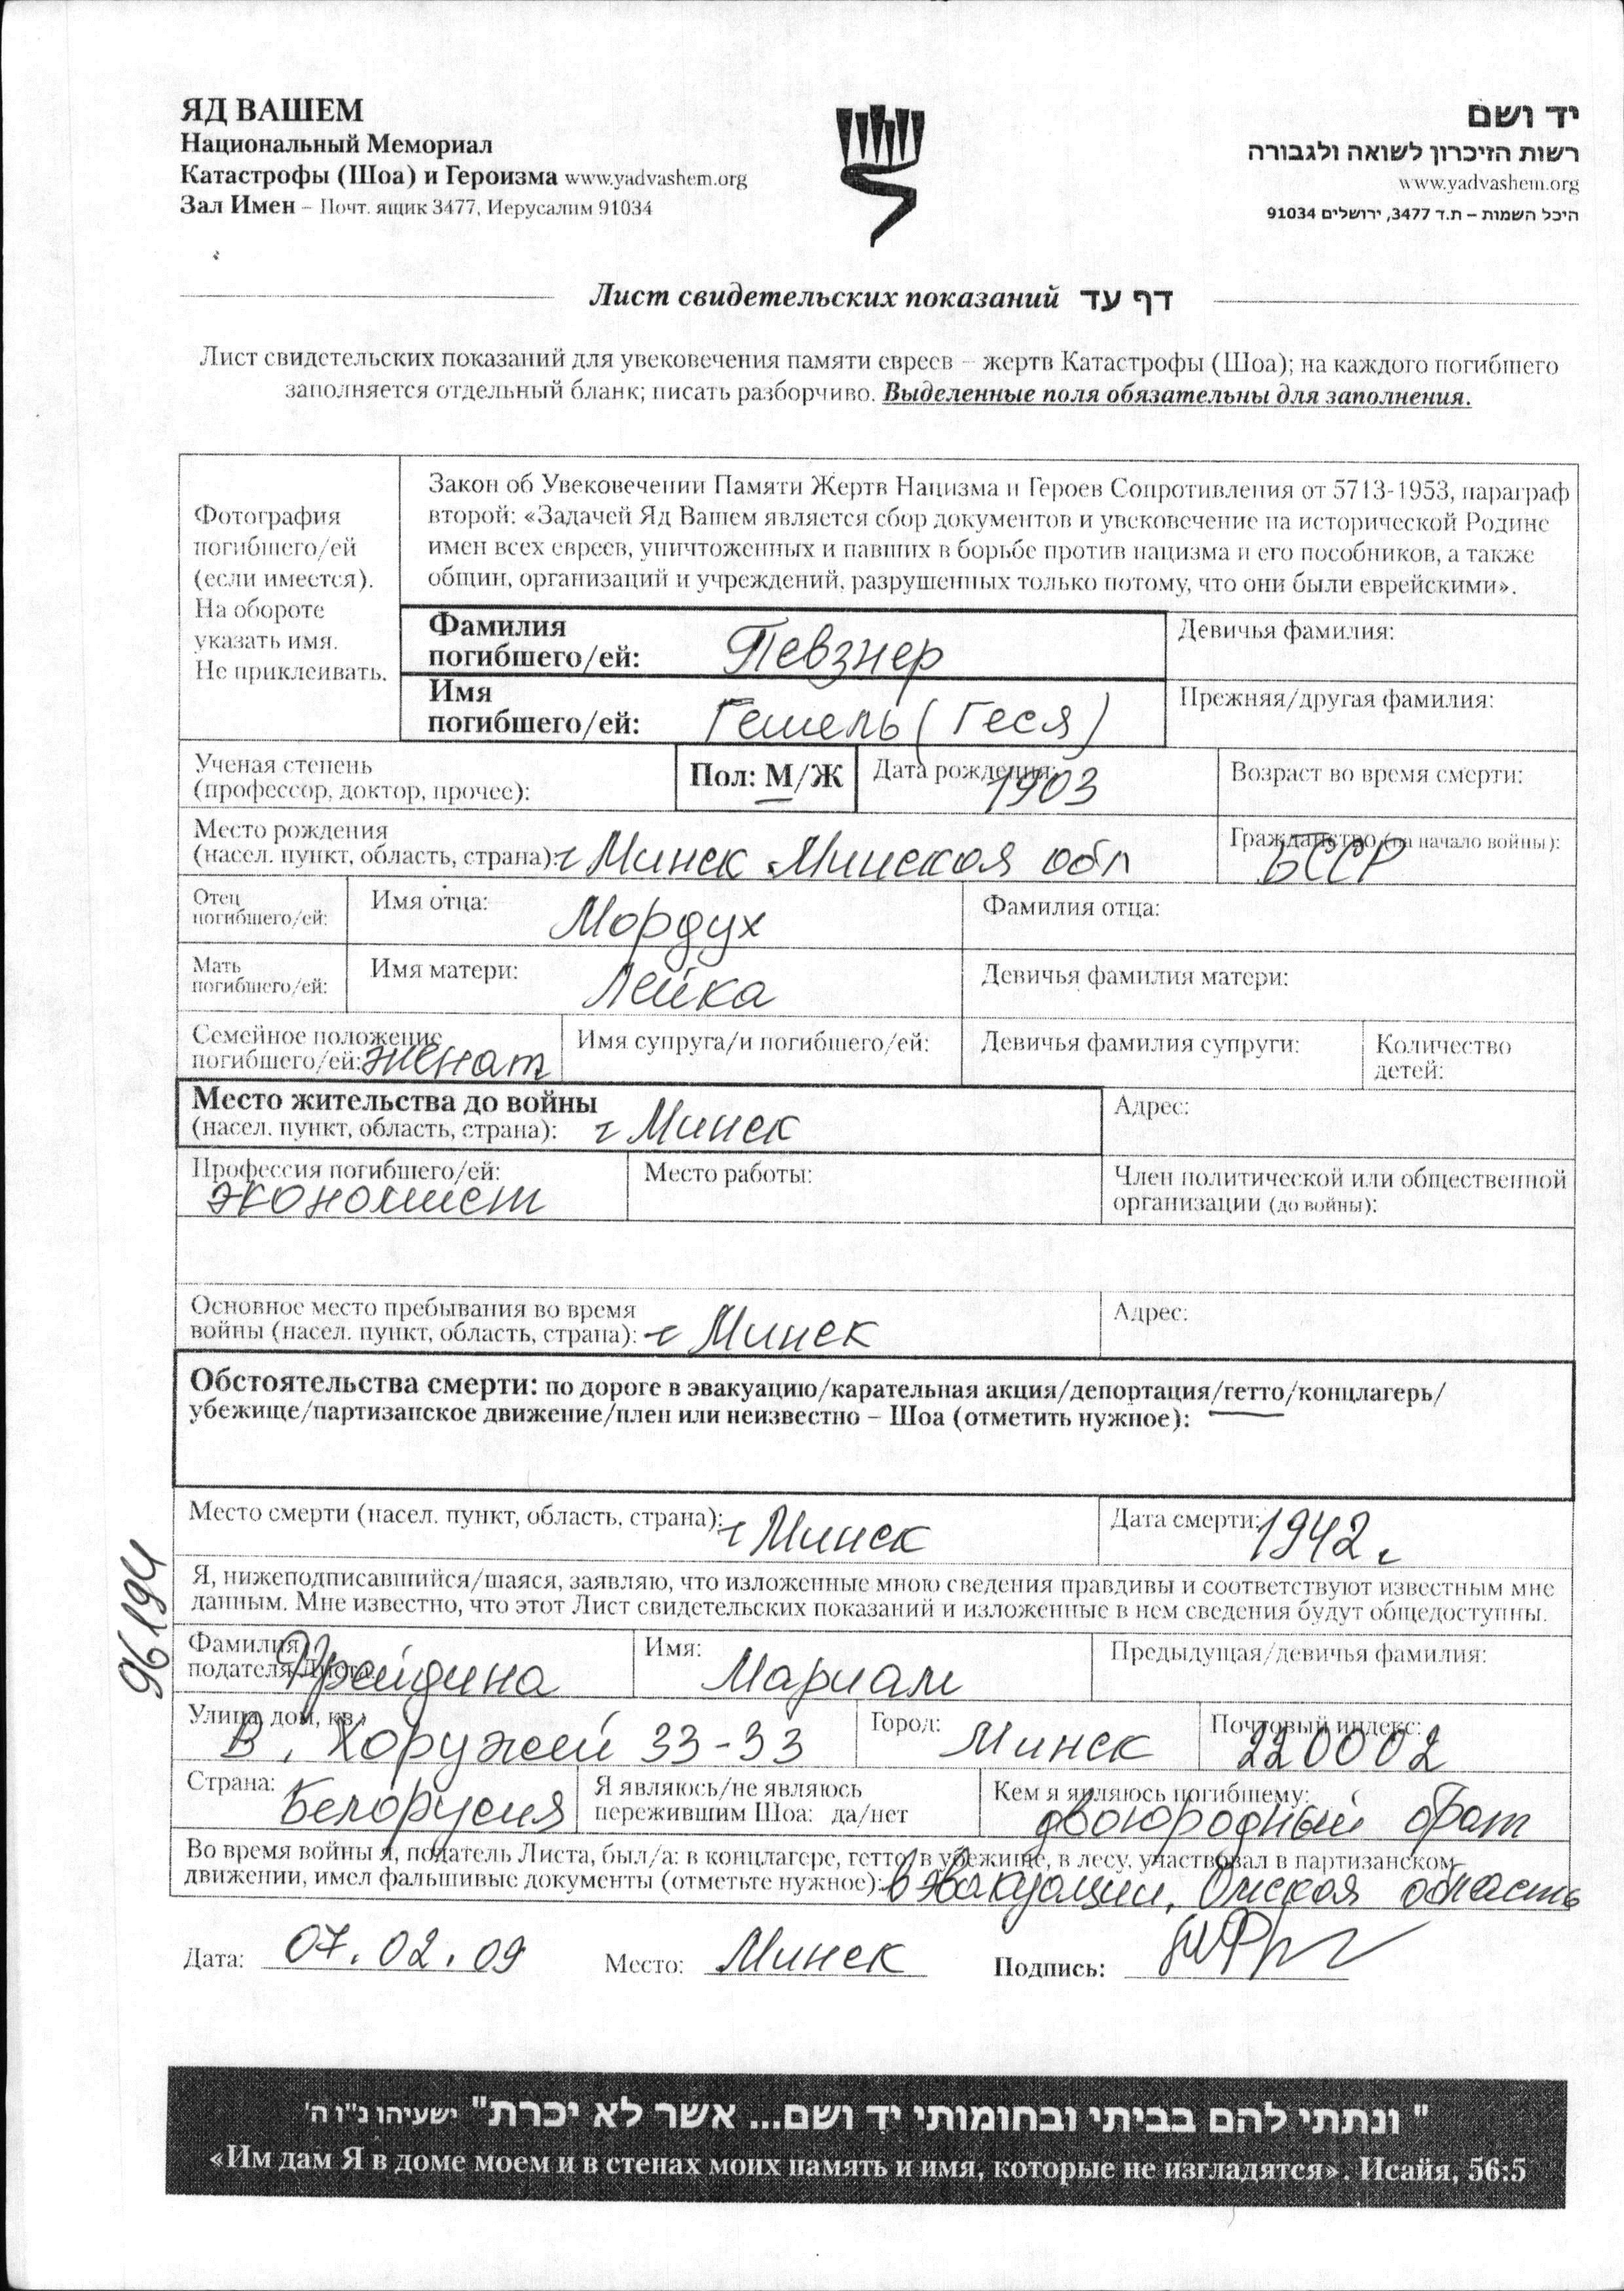 ЯД ВАШЕМ
Национальный Мемориал
Катастрофы (Шоа) и Героизма www.yadvashem.org
Зал Имен – Почт. ящик 3477, Иерусалим 91034
יד ושם
רשות הזיכרון לשואה ולגבורה
www.yadvashem.org
היכל השמות – ת.ד 3477, ירושלים 91034
Лист свидетельских показаний דף עד
Лист свидетельских показаний для увековечения памяти евреев – жертв Катастрофы (Шоа); на каждого погибшего
заполняется отдельный бланк; писать разборчиво. Выделенные поля обязательны для заполнения.
Фотография
погибшего/ей
(если имеется).
На обороте
указать имя.
Не приклеивать.
Закон об Увековечении Памяти Жертв Нацизма и Героев Сопротивления от 5713-1953, параграф
второй: «Задачей Яд Вашем является сбор документов и увековечение на исторической Родине
имен всех евреев, уничтоженных и павших в борьбе против нацизма и его пособников, а также
общин, организаций и учреждений, разрушенных только потому, что они были еврейскими».
Фамилия
погибшего/ей: Певзнер
Девичья фамилия:
Имя
погибшего/ей: Гешель (Геся)
Прежняя/другая фамилия:
Ученая степень
(профессор, доктор, прочес):
Пол: М/Ж
Дата рождения: 1903
Возраст во время смерти:
Место рождения
(насел. пункт, область, страна): г Минск Минская обл
Гражданство (на начало войны): БССР
Отец
погибшего/ей:
Имя отца: Мордух
Фамилия отца:
Мать
погибшего/ей:
Имя матери: Лейка
Девичья фамилия матери:
Семейное положение
погибшего/ей: женат
Имя супруга/и погибшего/ей:
Девичья фамилия супруги:
Количество
детей:
Место жительства до войны
(насел. пункт, область, страна): г Минск
Адрес:
Профессия погибшего/ей:
экономист
Место работы:
Член политической или общественной
организации (до войны):
Основное место пребывания во время
войны (насел. пункт, область, страна): г Минск
Адрес:
Обстоятельства смерти: по дороге в эвакуацию/карательная акция/депортация/гетто/концлагерь/
убежище/партизанское движение/плен или неизвестно – Шоа (отметить нужное):
Место смерти (насел. пункт, область, страна): г Минск
Дата смерти: 1942 г
96194
Я, нижеподписавшийся/шаяся, заявляю, что изложенные мною сведения правдивы и соответствуют известным мне
данным. Мне известно, что этот Лист свидетельских показаний и изложенные в нем сведения будут общедоступны.
Фамилия
подателя Листа: Фрейдина
Имя: Мариам
Предыдущая/девичья фамилия:
Улица, дом, кв.: В. Хоружей 33-33
Город: Минск
Почтовый индекс: 220002
Страна: Белорусия
Я являюсь/не являюсь
пережившим Шоа: да/нет
Кем я являюсь погибшему:
двоюродный брат
Во время войны я, податель Листа, был/а: в концлагере, гетто, в убежище, в лесу, участвовал в партизанском
движении, имел фальшивые документы (отметьте нужное): в эвакуации, Омская область
Дата: 07.02.09 Место: Минск Подпись:
" ונתתי להם בביתי ובחומותי יד ושם... אשר לא יכרת" ישעיהו נ"ו ה'
«Им дам Я в доме моем и в стенах моих память и имя, которые не изгладятся». Исайя, 56:5